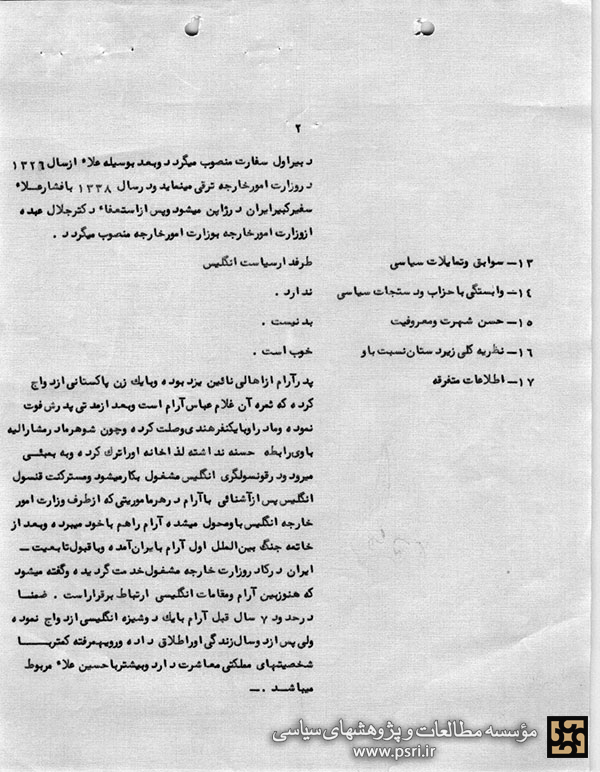 ۲
دبیراول سفارت منصوب میگردد وبعد بوسیله علاء ازسال ۱۳۲۶
دروزارت امورخارجه ترقی مینماید ودرسال ۱۳۳۸ بافشارعلاء
سفیرکبیرایران درژاپن میشود وپس ازاستعفاء دکترجلال عبده
ازوزارت امورخارجه بوزارت امورخارجه منصوب میگردد .
۱۳ـ سوابق وتمایلات سیاسی طرفدارسیاست انگلیس
۱٤ـ وابستگی باحزاب ودستجات سیاسی ندارد .
۱۵ـ حسن شهرت ومعروفیت بدنیست .
۱۶ـ نظریه کلی زیردستان نسبت باو خوب است .
۱۷ـ اطلاعات متفرقه پدرآرام ازاهالی نائین یزد بوده وبایك زن پاکستانی ازدواج
کرده که ثمره آن غلام عباس آرام است وبعد ازمدتی پدرش فوت
نموده ومادراوبایکنفرهندی وصلت کرده وچون شوهرمادرمشارالیه
باوی رابطه حسنه نداشته لذاخانه اوراترك کرده وبه بمبئی
میرود ودرقونسولگری انگلیس مشغول بکارمیشود ومسترکنت قنسول
انگلیس پس ازآشنائی باآرام درهرماموریتی که ازطرف وزارت امور
خارجه انگلیس باومحول میشده آرام راهم باخود میبرده وبعد از
خاتمه جنگ بین الملل اول آرام بایران آمده وباقبول تابعیت ـ
ایران درکادروزارت خارجه مشغول خدمت گردیده وگفته میشود
که هنوزبین آرام ومقامات انگلیسی ارتباط برقراراست . ضمنا
درحدود ۷ سال قبل آرام بایك دوشیزه انگلیسی ازدواج نموده
ولی پس ازدوسال زندگی اوراطلاق داده ورویهمرفته کمتربا
شخصیتهای مملکتی معاشرت دارد وبیشترباحسین علاء مربوط
میباشد . ـ
مؤسسه مطالعات و پژوهشهای سیاسی
www.psri.ir